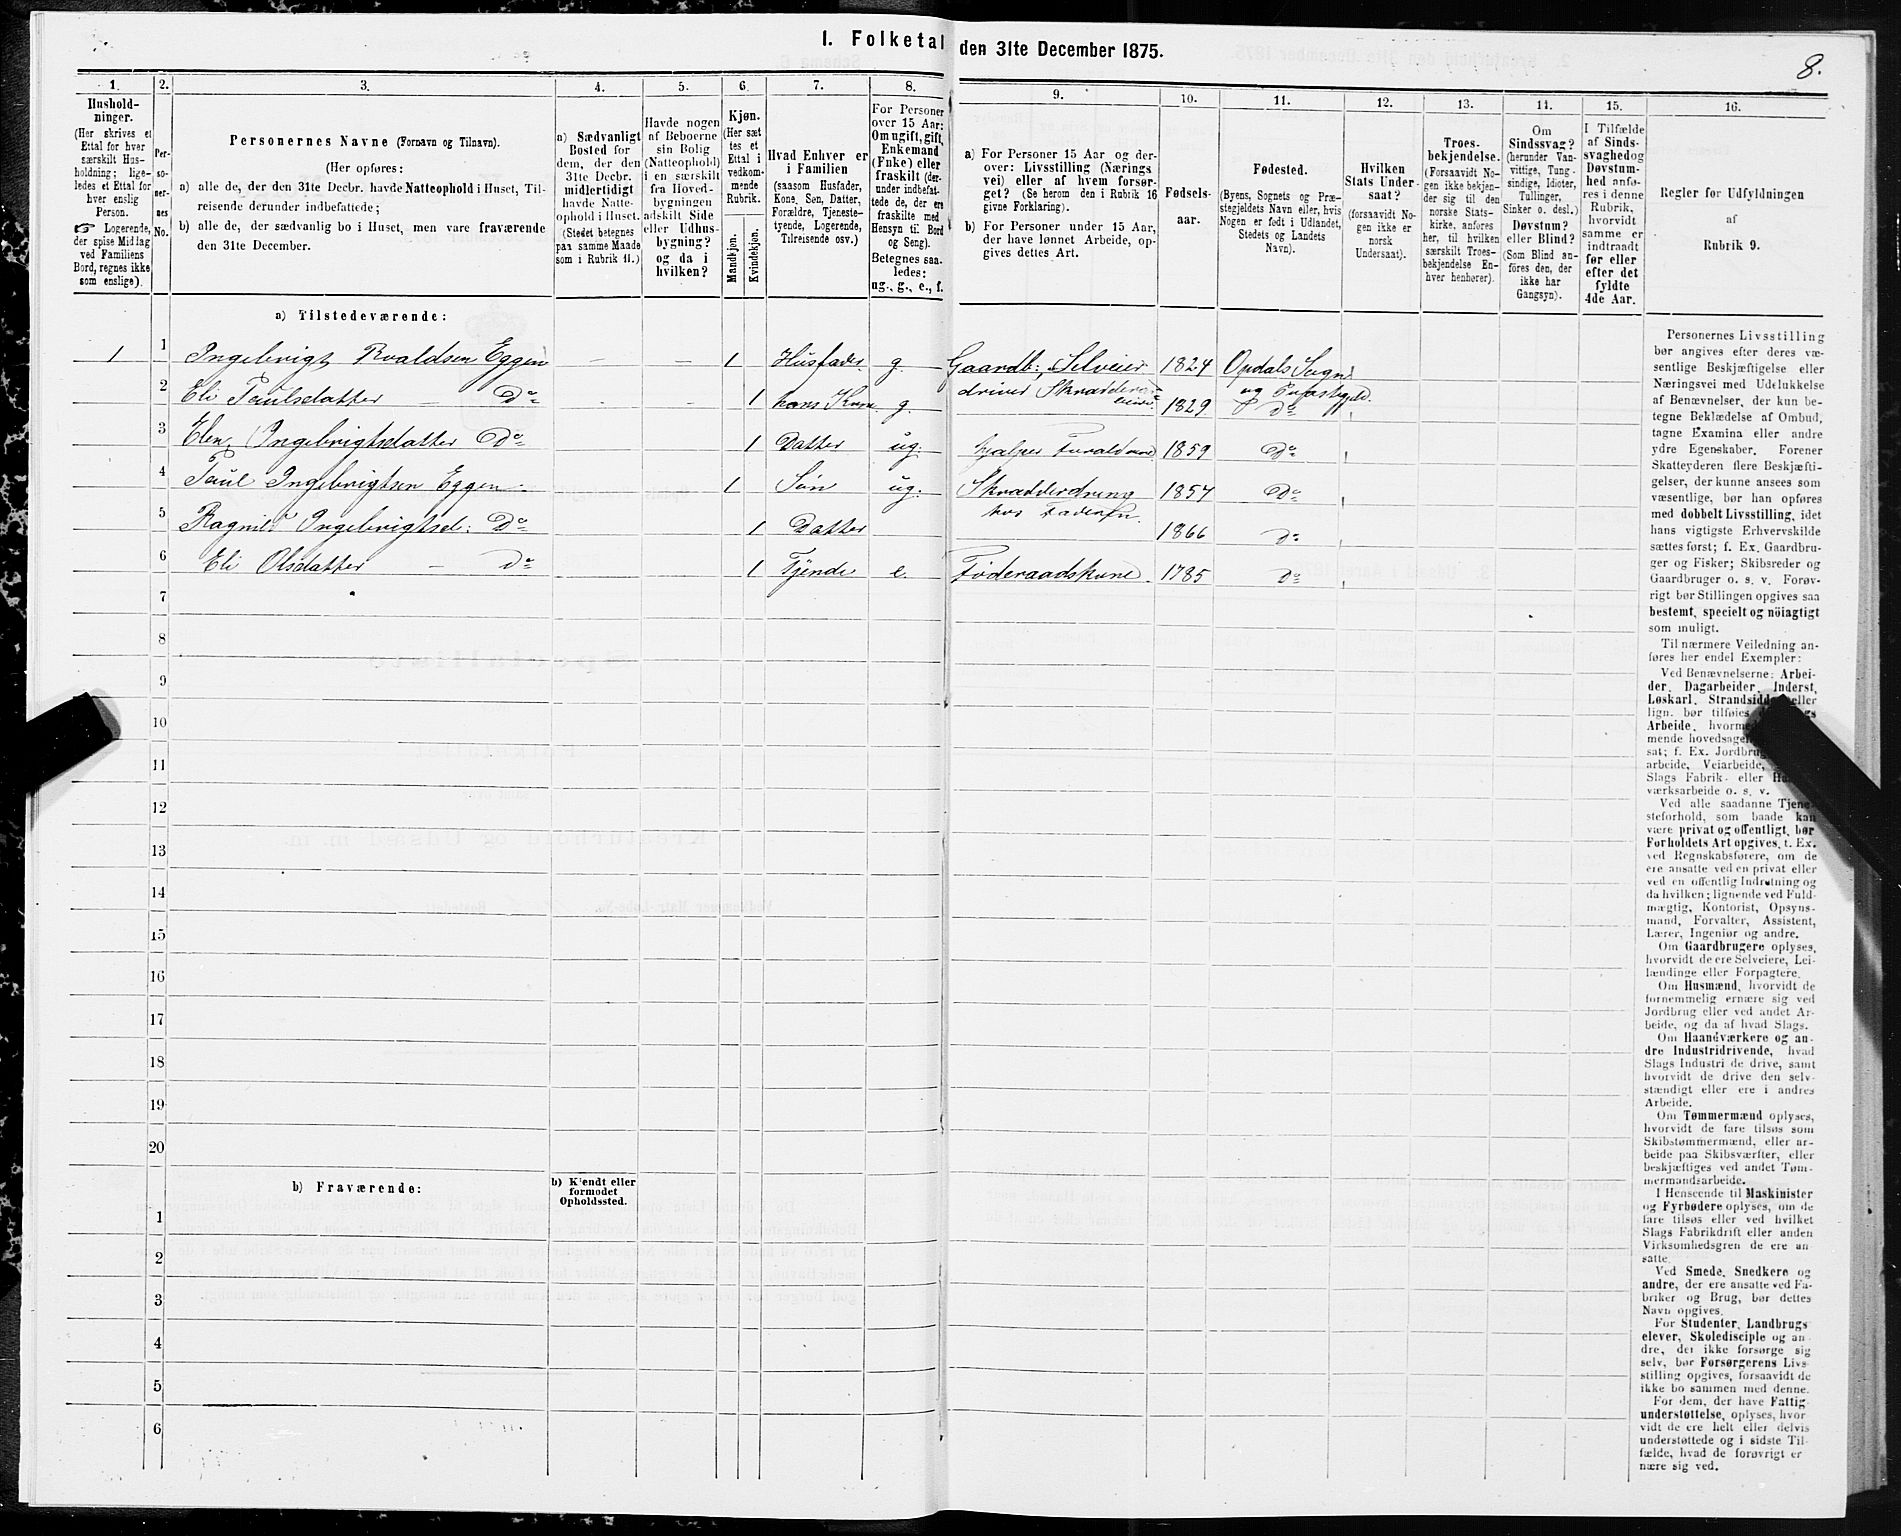 I. Folketal den 31te December 1875.
8.
1.
Hushold-
ninger.
(Her skrives et
Ettal for hver
særskilt Hus-
holdning; lige-
ledes et Ettal for
hver enslig
Person.
☞ Logerende,
der spise Middag
ved Familiens
Bord, regnes ikke
som enslige).
2.
Per-
so-
ner-
nes
No.
3.
Personernes Navne (Fornavn og Tilnavn).
(Her opføres:
a) alle de, der den 31te Decbr. havde Natteophold i Huset, Til-
reisende derunder indbefattede;
b) alle de, der sædvanlig bo i Huset, men vare fraværende
den 31te December.
4.
a) Sædvanligt
Bosted for
dem, der den
31te Decbr.
midlertidigt
havde Natte-
ophold i Huset.
(Stedet betegnes
paa samme Maade
som i Rubrik 11.)
5.
Havde nogen
af Beboerne
sin Bolig
(Natteophold)
i en særskilt
fra Hoved-
bygningen
adskilt Side
eller Udhus-
bygning?
og da i
hvilken?
6.
Kjøn.
(Her sæt
tes et
Ettal i
vedkom-
mende
Rubrik.
Mandkjøn.
Kvindekjøn.
7.
Hvad Enhver er
i Familien
(saasom Husfader,
Kone, Søn, Datter,
Forældre, Tjeneste-
tyende, Logerende,
Tilreisende osv.)
8.
For Personer
over 15 Aar:
Om ugift, gift,
Enkemand
(Enke) eller
fraskilt (der-
under indbefat-
tede de, der ere
fraskilte med
Hensyn til Bord
og Seng).
Betegnes saa-
ledes:
ug., g., e., f.
9.
a) For Personer 15 Aar og der-
over: Livsstilling (Nærings
vei) eller af hvem forsør-
get? (Se herom den i Rubrik 16
givne Forklaring).
b) For Personer under 15 Aar,
der have lønnet Arbeide, op-
gives dettes Art.
10.
Fødsels-
aar.
11.
Fødested.
(Byens, Sognets og Præ-
stegjeldets Navn eller, hvis
Nogen er født i Udlandet,
Stedets og Landets
Navn).
12.
Hvilken
Stats Under-
saat?
(forsaavidt No-
gen ikke er
norsk
Undersaat).
13.
Troes-
bekjendelse.
(Forsaavidt No-
gen ikke bekjen-
der sig til den
norske Stats-
kirke, anføres
her, til hvilken
særskilt Troes-
bekjendelse En-
hver henhører).
14.
Om
Sindssvag?
(herunder Van-
vittige, Tung-
sindige, Idioter,
Tullinger,
Sinker o. desl.)
Døvstum?
eller Blind?
(Som Blind an-
føres den, der
ikke har
Gangsyn).
15.
I Tilfælde
af Sinds-
svaghed og
Døvstum-
hed anfø-
res i denne
Rubrik,
hvorvidt
samme er
indtraadt
før eller
efter det
fyldte
4de Aar.
16.
Regler for Udfyldningen
af
Rubrik 9.
a) Tilstedeværende:
1 1 Ingebrigt Roaldsen Eggen – – 1 Husfader g. Gaardb: Selveier 1824 Opdals Sogn
2 Eli Paulsdatter – Do 1 hans Kone g. driver 1829 og Præstegjeld. Do
3 Elen Ingebrigtsdatter Do 1 Datter ug. hjælper Forældrene 1859 Do
4 Paul Ingebrigtsen Eggen 1 Søn ug. Skrædderdreng 1857 Do
hos Faderen.
5 Ragnild Ingebrigtsd: Do 1 Datter 1866 Do
6 Eli Olsdatter – Do 1 Tjende e. Føderaadskone 1785 Do
7
8
9
10
11
12
13
14
15
16
17
18
19
20
b) Fraværende:
b) Kjendt eller
formodet
Opholdssted.
1
2
3
4
5
6
Personernes Livsstilling
bør angives efter deres væ-
sentlige Beskjæftigelse eller
Næringsvei med Udelukkelse
af Benævnelser, der kun be-
tegne Beklædelse af Ombud,
tagne Examina eller andre
ydre Egenskaber. Forener
Skatteyderen flere Beskjæfti-
gelser, der kunne ansees som
væsentlige, bør han opføres
med dobbelt Livsstilling, idet
hans vigtigste Erhvervskilde
sættes først; f. Ex. Gaardbru-
ger og Fisker; Skibsreder og
Gaardbruger o. s. v. Forøv-
rigt bør Stillingen opgives saa
bestemt, specielt og nöiagtigt
som muligt.
Til nærmere Veiledning an-
føres her endel Exempler:
Ved Benævnelserne: Arbei-
der, Dagarbeider, Inderst,
Løskarl, Strandsidder eller
lign. bør tilføies
Arbeide, hvormed
mende hovedsagelig
sat; f. Ex. Jordbrugs
arbeide, Veiarbeide,
Slags Fabrik- eller
værksarbeide o. s. v.
Ved alle saadanne Tjene-
steforhold, som baade kan
være privat og offentligt, bør
Forholdets Art opgives, f. Ex.
ved Regnskabsførere, om de
ere ansatte ved en privat eller
ved en offentlig Indretning og
da hvilken; lignende ved Fuld-
mægtig, Kontorist, Opsyns-
mand, Forvalter, Assistent,
Lærer, Ingeniør og andre.
Om Gaardbrugere oplyses,
hvorvidt de ere Selveiere, Lei-
lændinge eller Forpagtere.
Om Husmænd, hvorvidt de
fornemmelig ernære sig ved
Jordbrug eller ved andet Ar-
beide, og da af hvad Slags.
Om Haandværkere og an-
dre Industridrivende, hvad
Slags Industri de drive, samt
hvorvidt de drive den selv-
stændigt eller ere i andres
Arbeide.
Om Tømmermænd oplyses,
hvorvidt de fare tilsøs som
Skibstømmermænd, eller ar-
beide paa Skibsværfter, eller
beskjæftiges ved andet Tøm-
mermandsarbeide.
I Henseende til Maskinister
og Fyrbødere oplyses, om de
fare tilsøs eller ved hvilket
Slags Fabrikdrift eller anden
Virksomhedsgren de ere an-
satte.
Ved Smede, Snedkere og
andre, der ere ansatte ved Fa-
briker og Brug, bør dettes
Navn opgives.
For Studenter, Landbrugs
elever, Skoledisciple og an-
dre, der ikke forsørge sig
selv, bør Forsørgerens Livs-
stilling opgives, forsaavidt de
ikke bo sammen med denne.
For dem, der have Fattig-
understøttelse, oplyses, hvor
vidt de ere helt eller delvis
understøttede og i sidste Til-
fælde, hvad de forøvrigt er
nære sig ved.